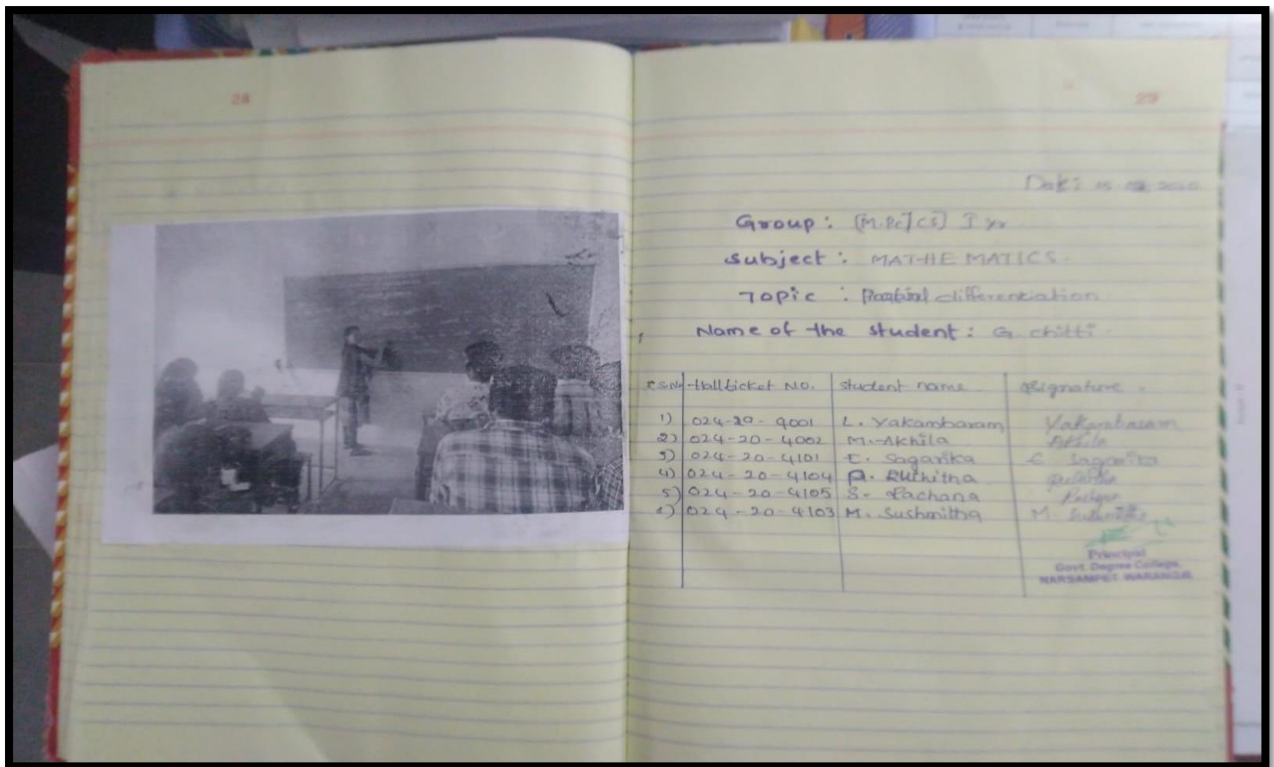 28
29
Date: 2020
Group: [M.Pc] CS] I yr
Subject: MATHEMATICS.
Topic: Partial differentiation
Name of the student: G. chitti.
S.No Hallticket No. student name signature.
1) 024-20-4001 L. Yakambaram Yakambaram
2) 024-20-4002 M. Akhila Akhila
3) 024-20-4101 E. Sagarika E Sagarika
4) 024-20-4104 R. Ruchitha
5) 024-20-4105 S. Rachana
6) 024-20-4103 M. Sushmitha M. Sushmitha
Principal
Govt. Degree College,
NARSAMPET. WARANGAL